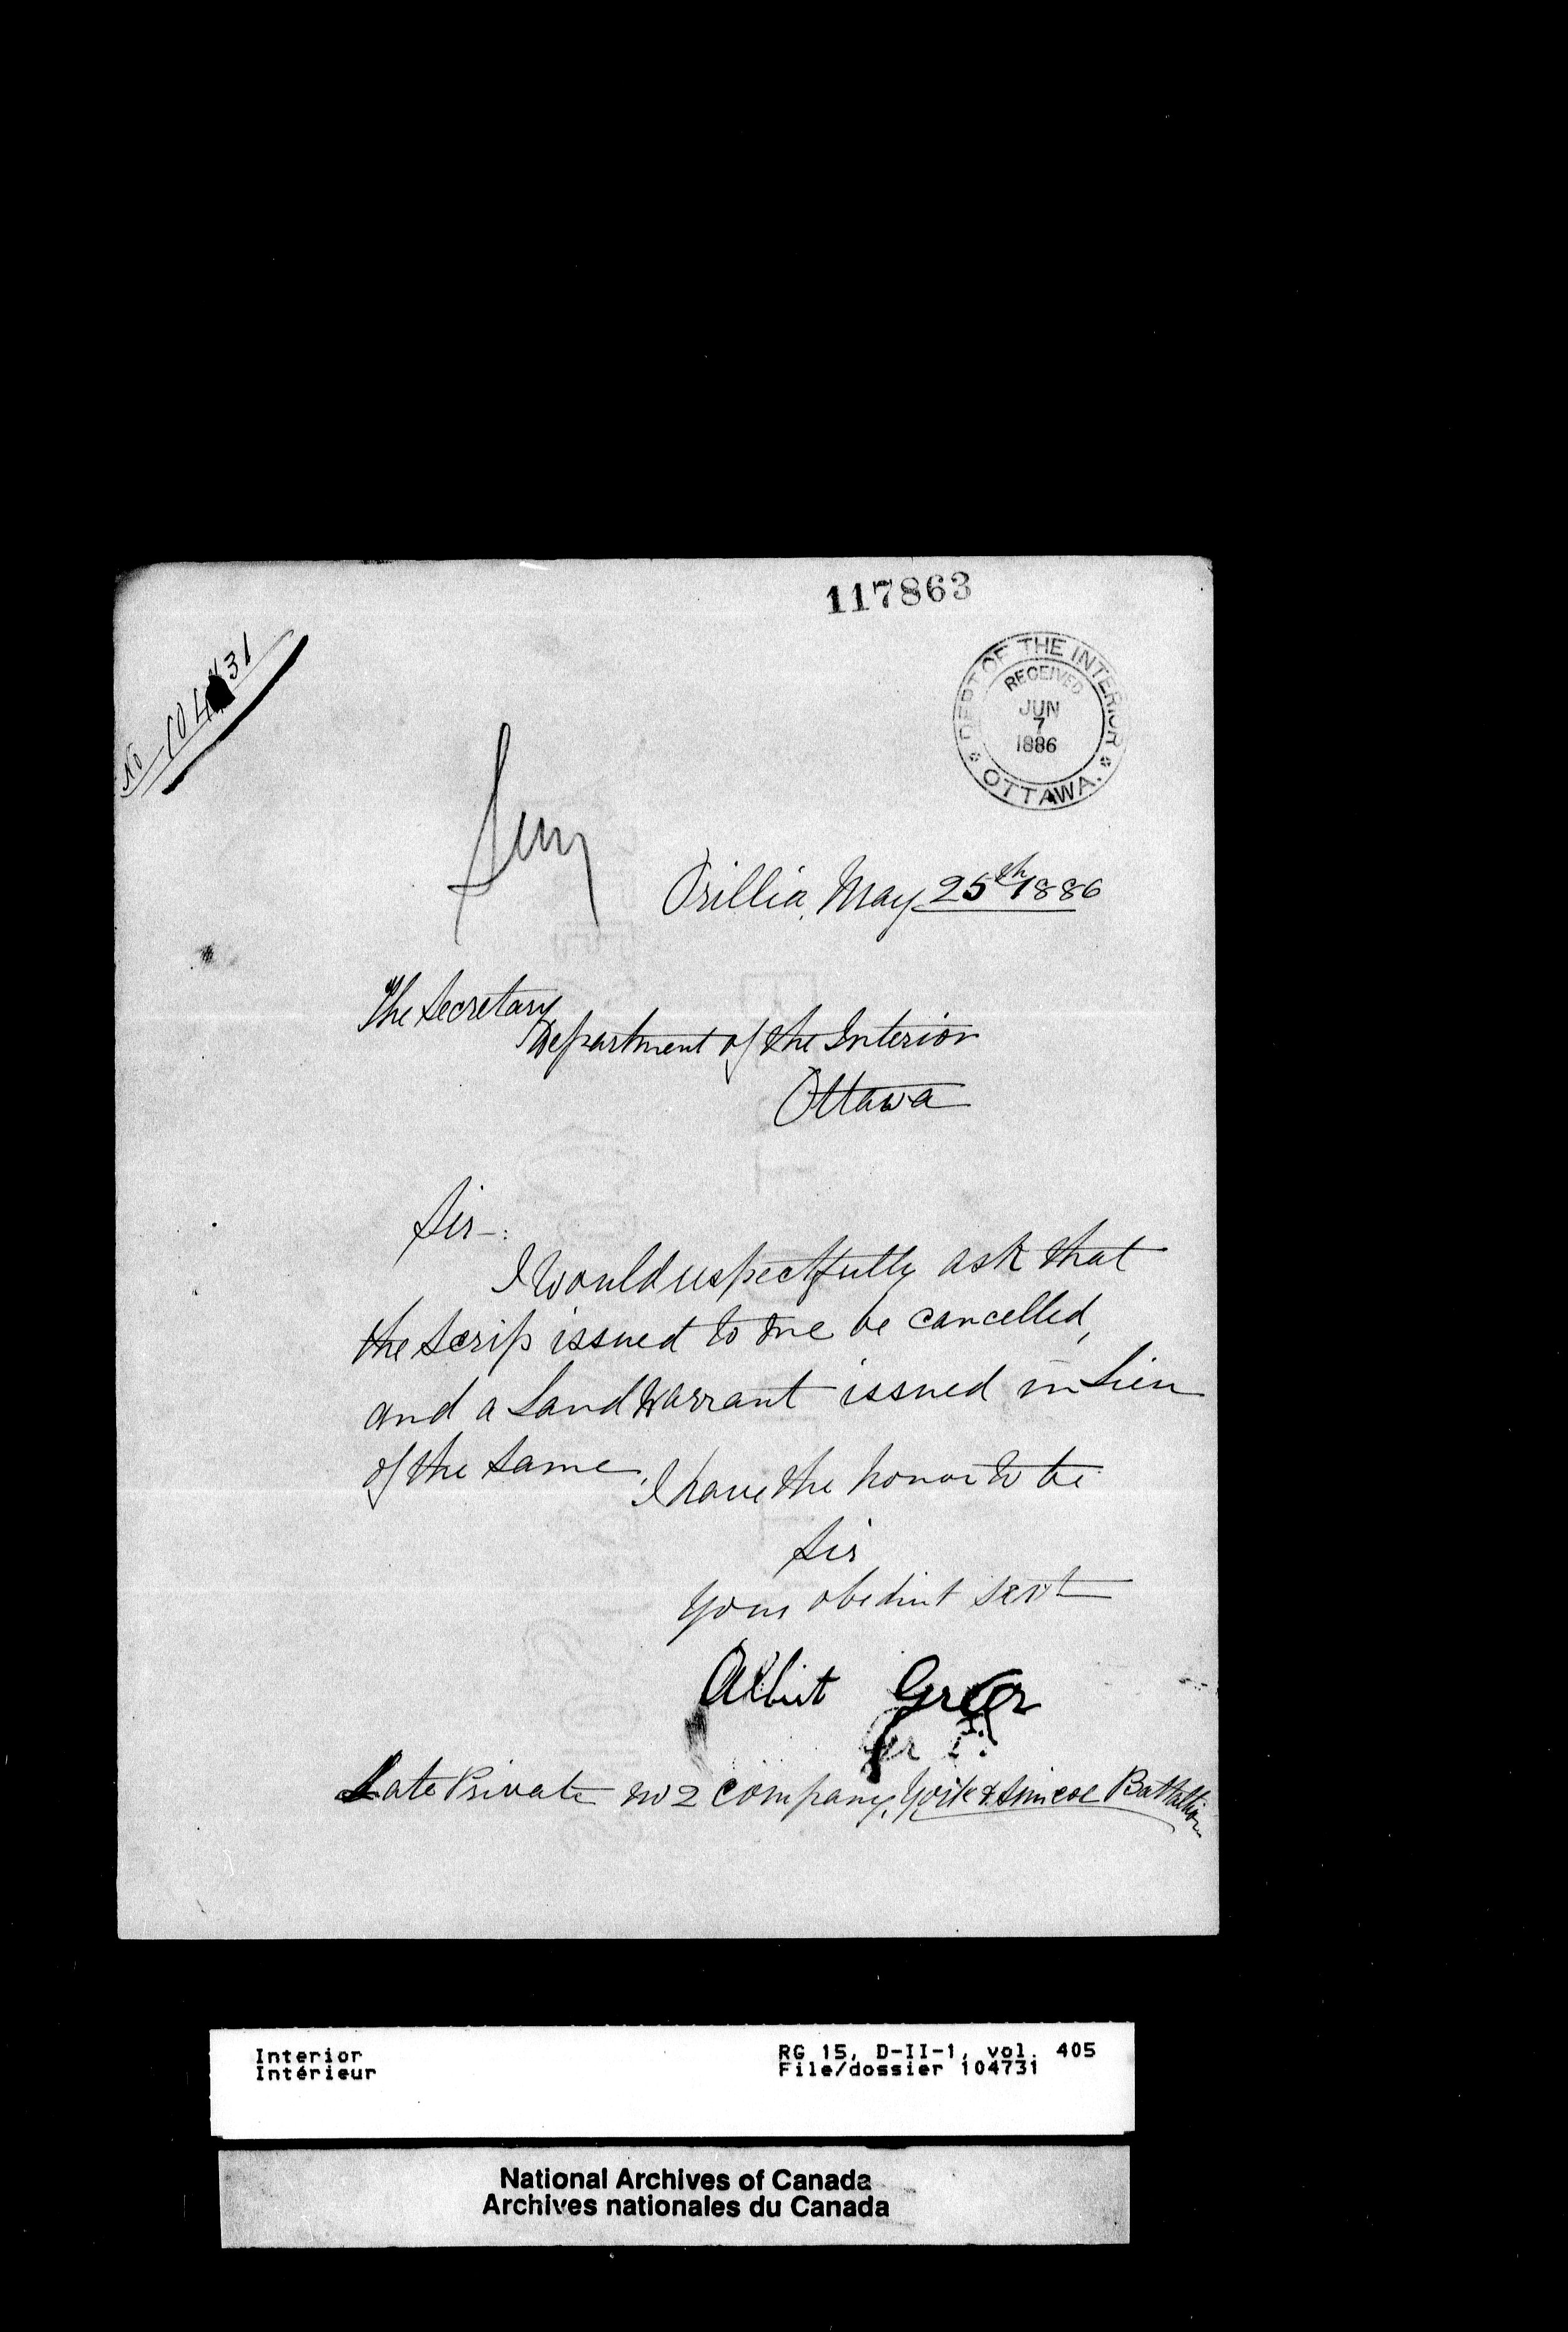 117863
No 104731
DEPT OF THE INTERIOR
RECEIVED
JUN
7
1886
OTTAWA.
Orillia, May 25th 1886
The Secretary
Department of the Interior
Ottawa
Sir-:
I would respectfully ask that
the Scrip issued to me be cancelled,
and a Land Warrant issued in Lieu
of the same.
I have the honor to be
Sir
Your obedint servt
Albirt Greer
Late Private No 2 Company, York & Simcoe Battallion
Interior
Intérieur
RG 15, D-II-1, vol. 405
File/dossier 104731
National Archives of Canada
Archives nationales du Canada